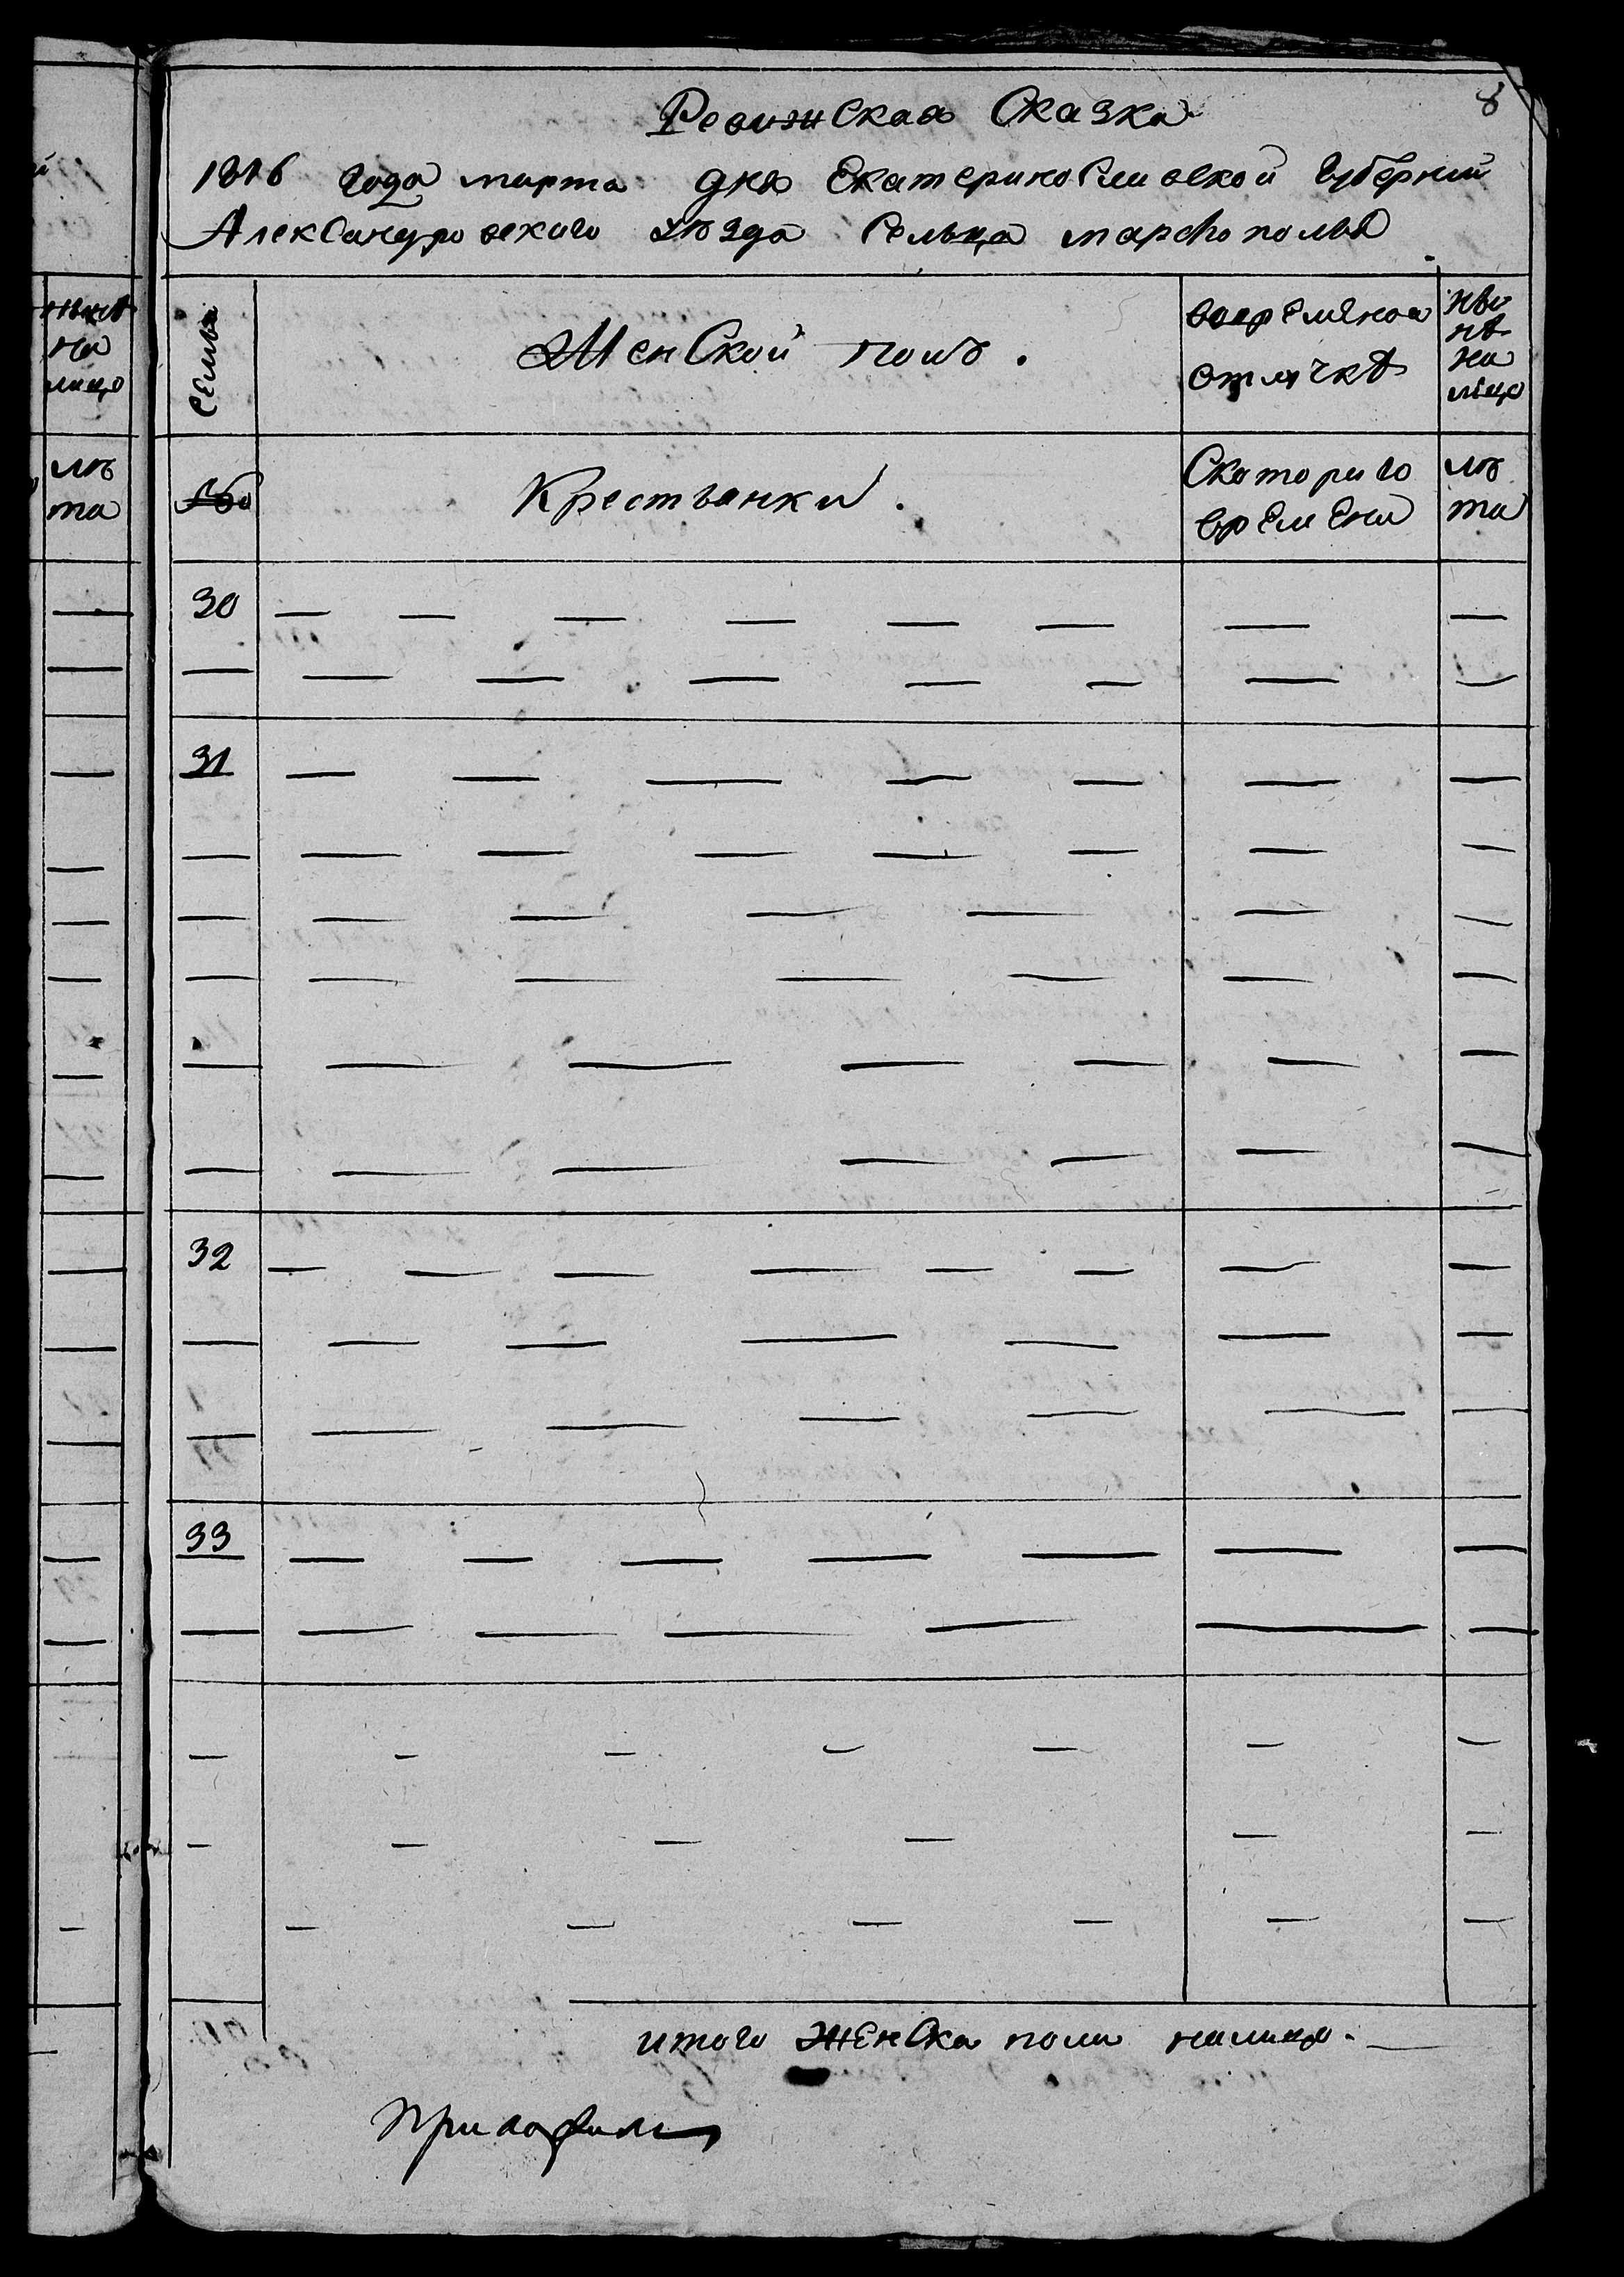 8
Ревижская Сказка
1816 года марта дня Екатеринославской губернии
Александровского уѣзда сельца марфополья
Семьи
Женской полъ.
вовремѣнной отлучкѣ
ныне на лицо
№
Крестьянки.
Скаторого времени
лѣта
30
31
32
33
итого женска пола налицо. —
нынѣ на лицо
лѣта